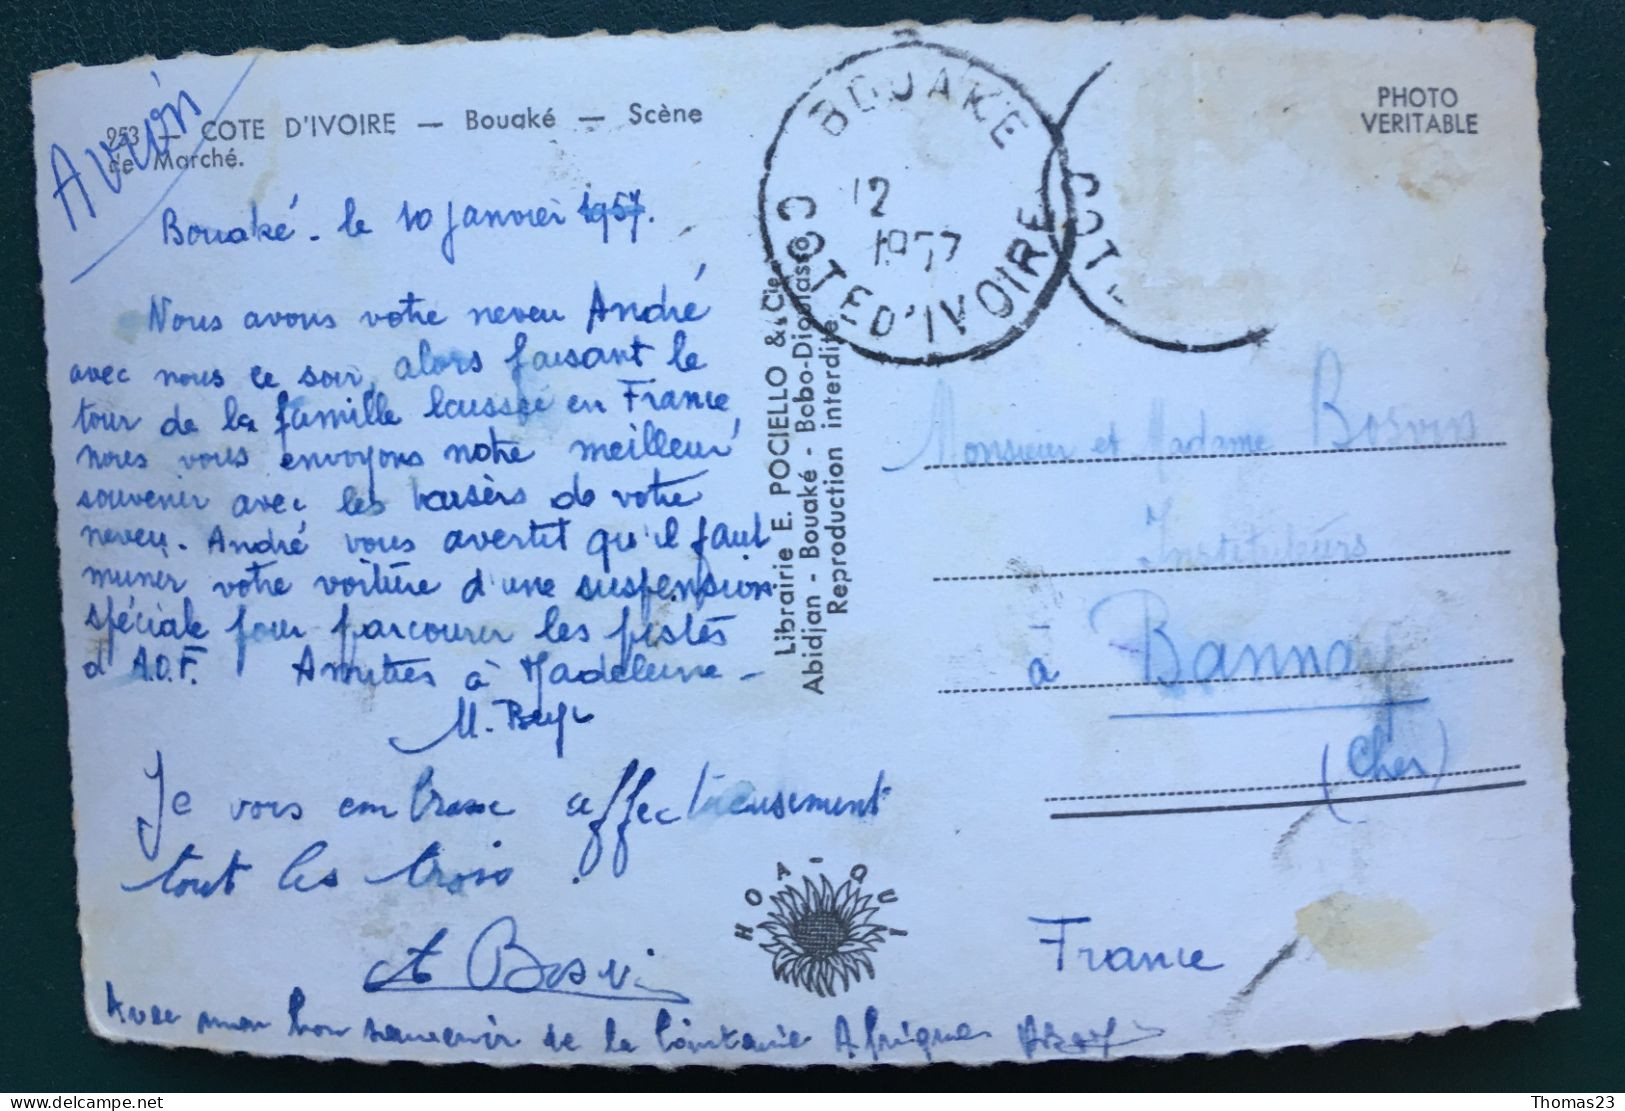 Avion
253 — COTE D'IVOIRE — Bouaké — Scène
de Marché.
Bouaké. le 10 janvier 1957.
Nous avons votre neveu André
avec nous ce soir, alors faisant le
tour de la famille laissée en France
nous vous envoyons notre meilleur
souvenir avec les baisers de votre
neveu. André vous avertit qu'il faut
munir votre voiture d'une suspension
spéciale pour parcourir les pistes
d'A.O.F. Amitiés à Madeleine -
M.
Je vous embrasse affectueusement
tout les trois.
Bosvin
Avec mon bon souvenir de la lointaine Afrique
Librairie E. POCIELLO & Cie
Abidjan - Bouaké - Bobo-Dioulasso
Reproduction interdite
HOA-QUI
BOUAKE
12
1957
COTE D'IVOIRE
COTE
PHOTO
VERITABLE
Monsieur et Madame Bosvin
Instituteurs
à Bannay
(Cher)
France
Thomas23